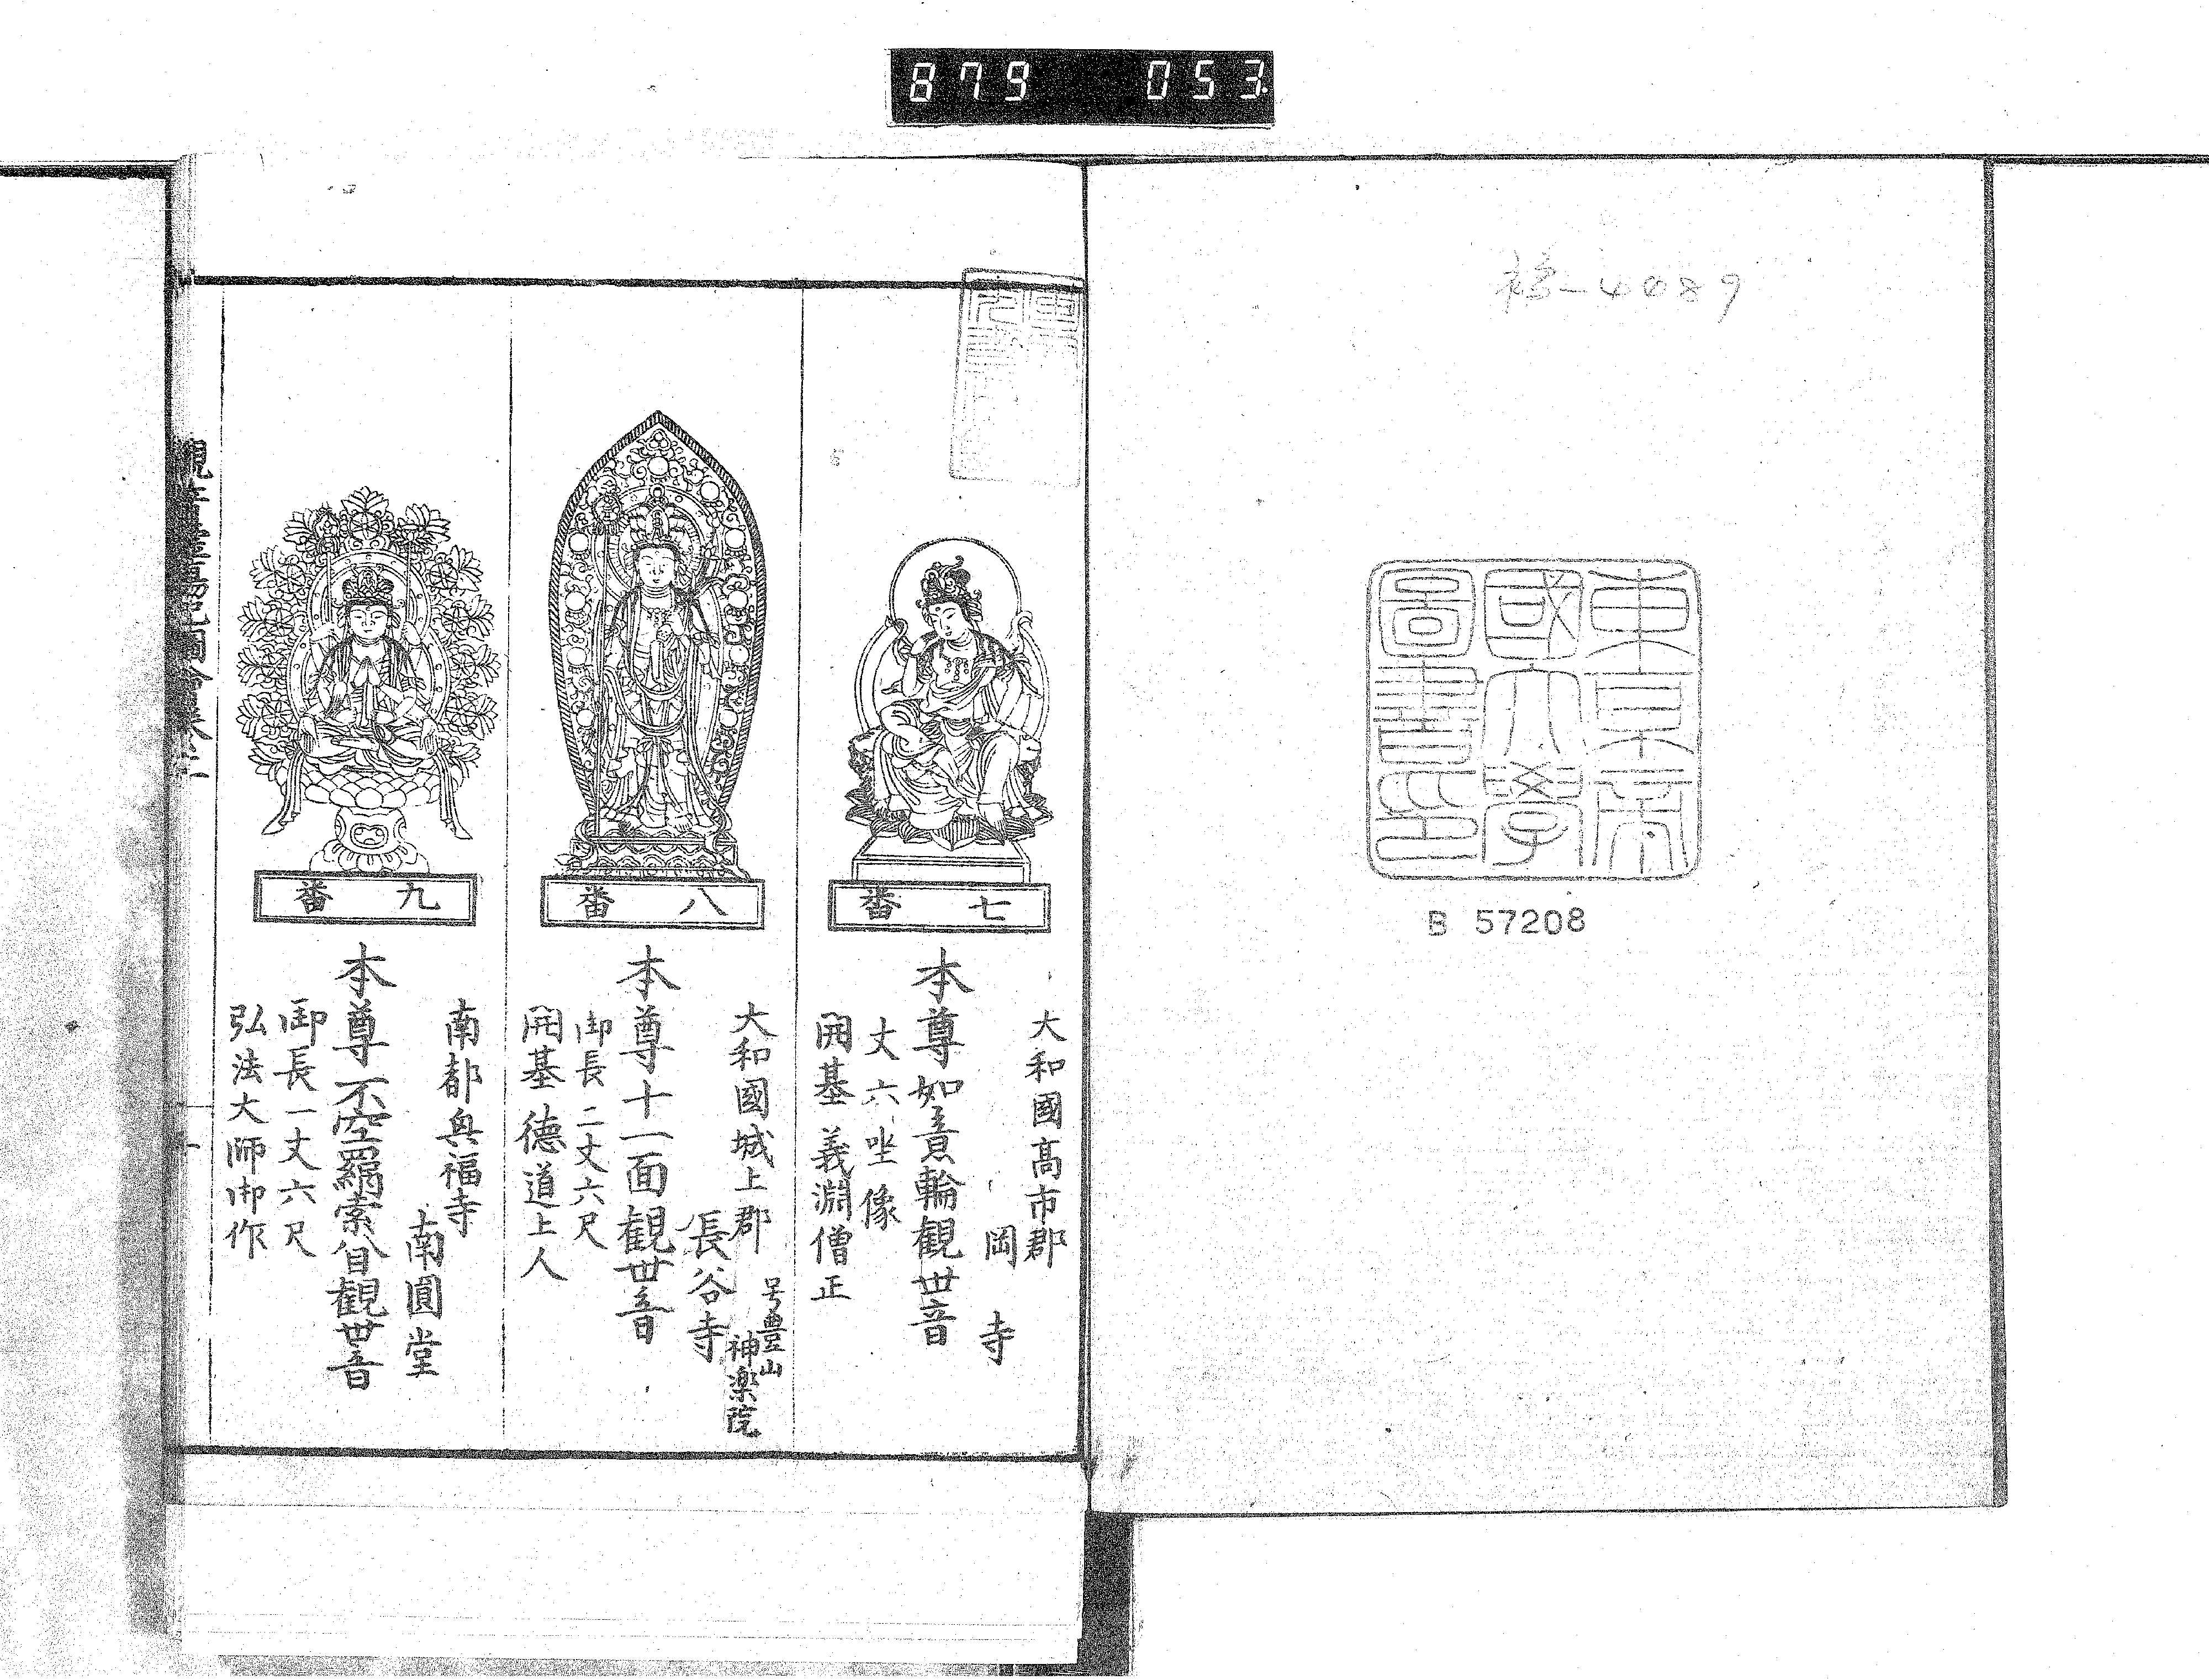 879 053
4089
東京帝
國大學
圖書印
B 57208
七番
大和國高市郡
岡寺
本尊如意輪觀世音
丈六坐像
開基義淵僧正
八番
大和國城上郡
号豊山
神楽院
長谷寺
本尊十一面觀世音
御長二丈六尺
開基德道上人
九番
南都興福寺
南圓堂
本尊不空羂索自觀世音
御長一丈六尺
弘法大師御作